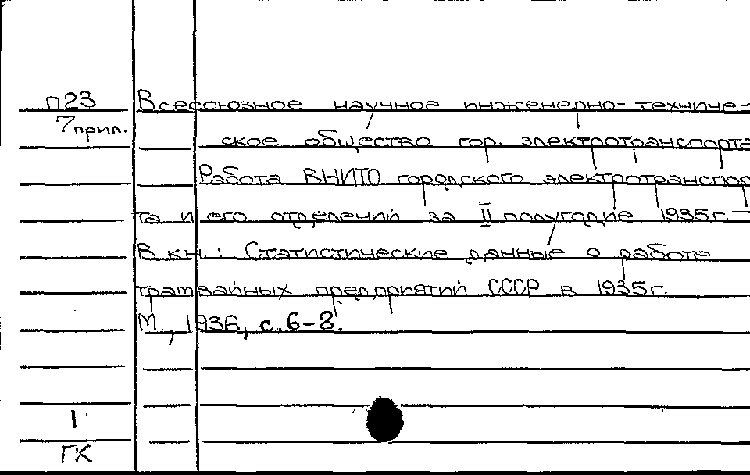 П23 Всесоюзное научное инженерно-техниче-
7 прил. ское общество гор. электротранспорта
Работа ВНИТО городского электротранспор
та и его отделений за II полугодие 1935г.-
В кн.: Статистические данные о работе
трамвайных предприятий СССР в 1935г.
М., 1936, с. 6-8.
1
ГК